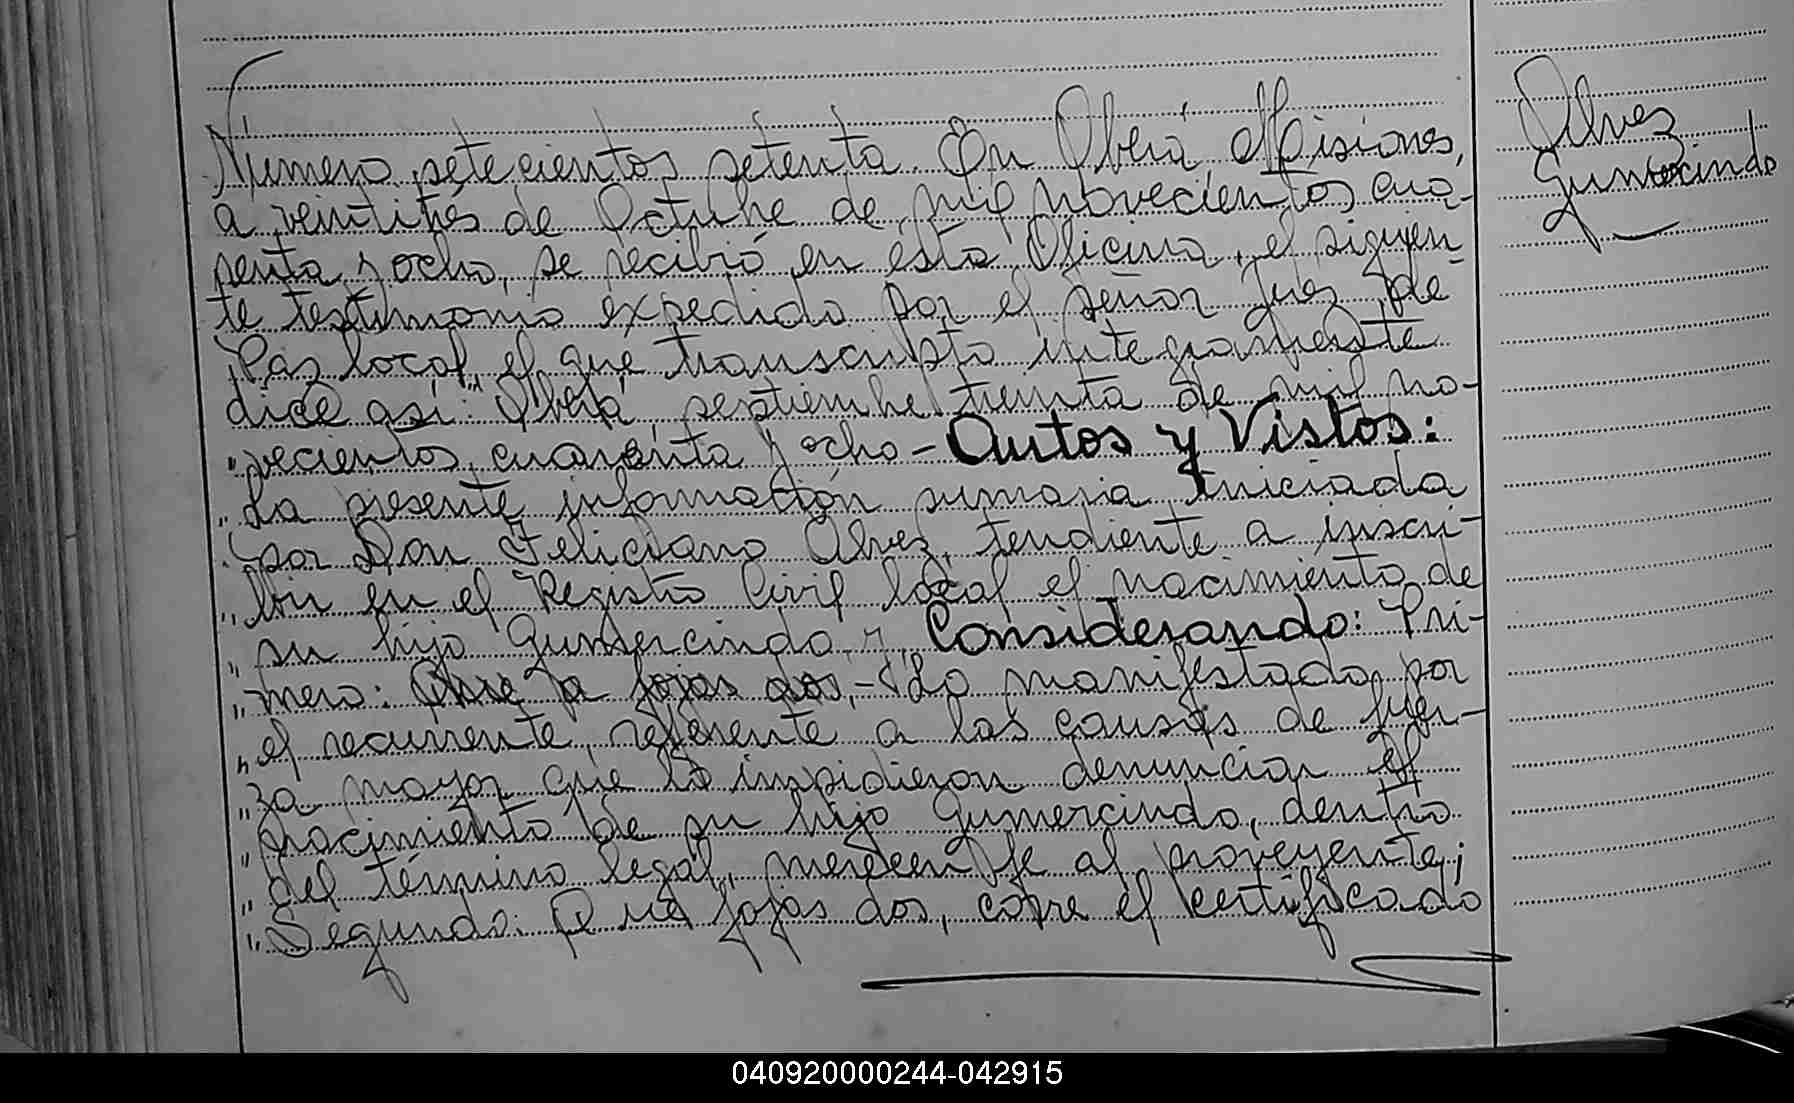 Número setecientos setenta. En Oberá Misiones,
a veintitrés de Octubre de mil novecientos cua-
renta y ocho, se recibió en ésta Oficina, el siguien
te testimonio expedido por el señor Juez de
Paz local, el que transcripto integramente
dice así: "Oberá, septiembre treinta de mil no-
"vecientos cuarenta y ocho - Autos y Vistos:
"La presente información sumaria iniciada
"por Don Feliciano Alvez, tendiente a inscri-
"bir en el Registro Civil local el nacimiento de
"su hijo Gumercindo y, Considerando: Pri-
"mero: Que a fojas dos,- Lo manifestado por
"el recurrente, referente a las causas de fuer-
"za mayor que le impidieron denunciar el
"nacimiento de su hijo Gumercindo, dentro
"del término legal, merecen fe al proveyente;
"Segundo: Que fojas dos, corre el certificado
Alvez
Gumercindo
040920000244-042915